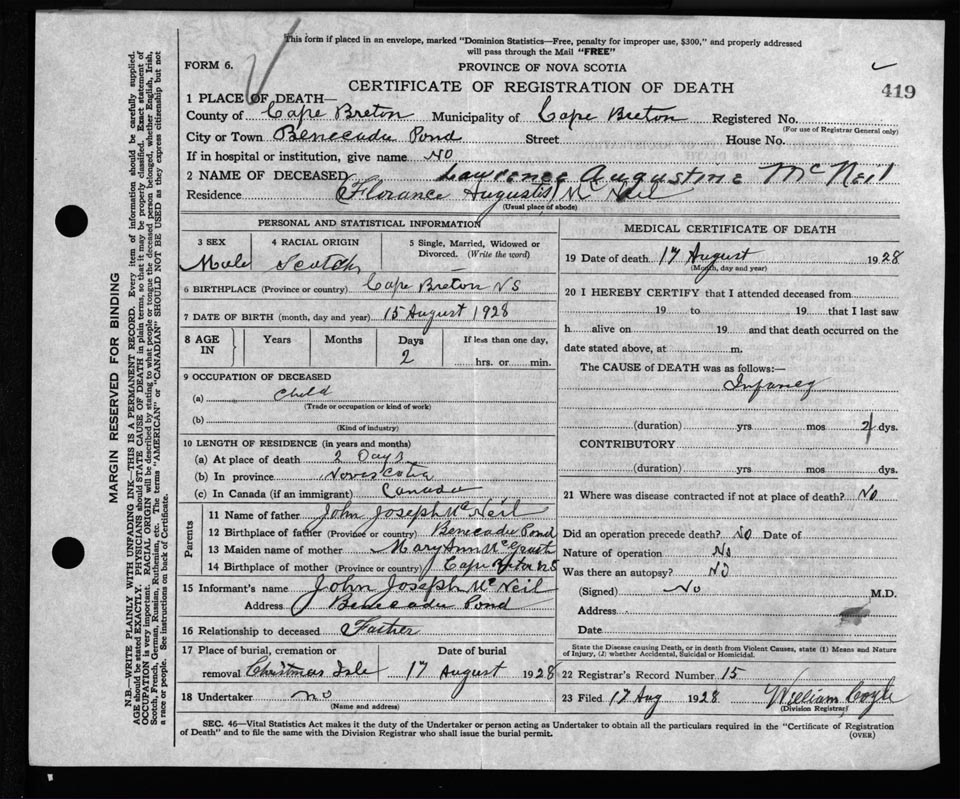 This form if placed in an envelope, marked "Dominion Statistics—Free, penalty for improper use, $300," and properly addressed
will pass through the Mail "FREE"
FORM 6.
PROVINCE OF NOVA SCOTIA
CERTIFICATE OF REGISTRATION OF DEATH
419
1 PLACE OF DEATH—
County of Cape Breton Municipality of Cape Breton Registered No.
(For use of Registrar General only)
City or Town Benecadu Pond Street House No.
If in hospital or institution, give name No
2 NAME OF DECEASED Lawrence Augustine McNeil
Residence Florance Augustis McNeil
(Usual place of abode)
PERSONAL AND STATISTICAL INFORMATION
3 SEX 4 RACIAL ORIGIN 5 Single, Married, Widowed or Divorced. (Write the word)
Male Scotch
6 BIRTHPLACE (Province or country) Cape Breton NS
7 DATE OF BIRTH (month, day and year) 15 August 1928
8 AGE IN Years Months Days If less than one day,
2 hrs. or min.
9 OCCUPATION OF DECEASED
(a) Child
(Trade or occupation or kind of work)
(b)
(Kind of industry)
10 LENGTH OF RESIDENCE (in years and months)
(a) At place of death 2 Days
(b) In province Nova Scotia
(c) In Canada (if an immigrant) Canada
Parents
11 Name of father John Joseph McNeil
12 Birthplace of father (Province or country) Benecadu Pond
13 Maiden name of mother Mary Ann
14 Birthplace of mother (Province or country) Cape Breton NS
15 Informant's name John Joseph McNeil
Address Benecadu Pond
16 Relationship to deceased Father
17 Place of burial, cremation or removal Date of burial
Christmas Isle 17 August 1928
18 Undertaker no
(Name and address)
MEDICAL CERTIFICATE OF DEATH
19 Date of death 17 August 1928
(Month, day and year)
20 I HEREBY CERTIFY that I attended deceased from
19 to 19 that I last saw
h alive on 19 and that death occurred on the
date stated above, at m.
The CAUSE of DEATH was as follows:—
Infancy
(duration) yrs mos 2 dys.
CONTRIBUTORY
(duration) yrs. mos. dys.
21 Where was disease contracted if not at place of death? No
Did an operation precede death? No Date of
Nature of operation No
Was there an autopsy? No
(Signed) No M.D.
Address
Date
State the Disease causing Death, or in death from Violent Causes, state (1) Means and Nature of Injury, (2) whether Accidental, Suicidal or Homicidal.
22 Registrar's Record Number 15
23 Filed 17 Aug 1928 William Coyle
(Division Registrar)
SEC. 46—Vital Statistics Act makes it the duty of the Undertaker or person acting as Undertaker to obtain all the particulars required in the "Certificate of Registration
of Death" and to file the same with the Division Registrar who shall issue the burial permit.
(OVER)
MARGIN RESERVED FOR BINDING
N.B.—WRITE PLAINLY WITH UNFADING INK—THIS IS A PERMANENT RECORD. Every item of information should be carefully supplied.
AGE should be stated EXACTLY. PHYSICIANS should STATE CAUSE OF DEATH in plain terms, so that it may be properly classified. Exact statement of
OCCUPATION is very important. RACIAL ORIGIN will be described by stating to what people or tongue the deceased person belonged, whether English, Irish,
Scotch, French, German, Russian, Ruthenian, etc. The terms "AMERICAN" or "CANADIAN" SHOULD NOT BE USED as they express citizenship but not
a race or people. See instructions on back of Certificate.